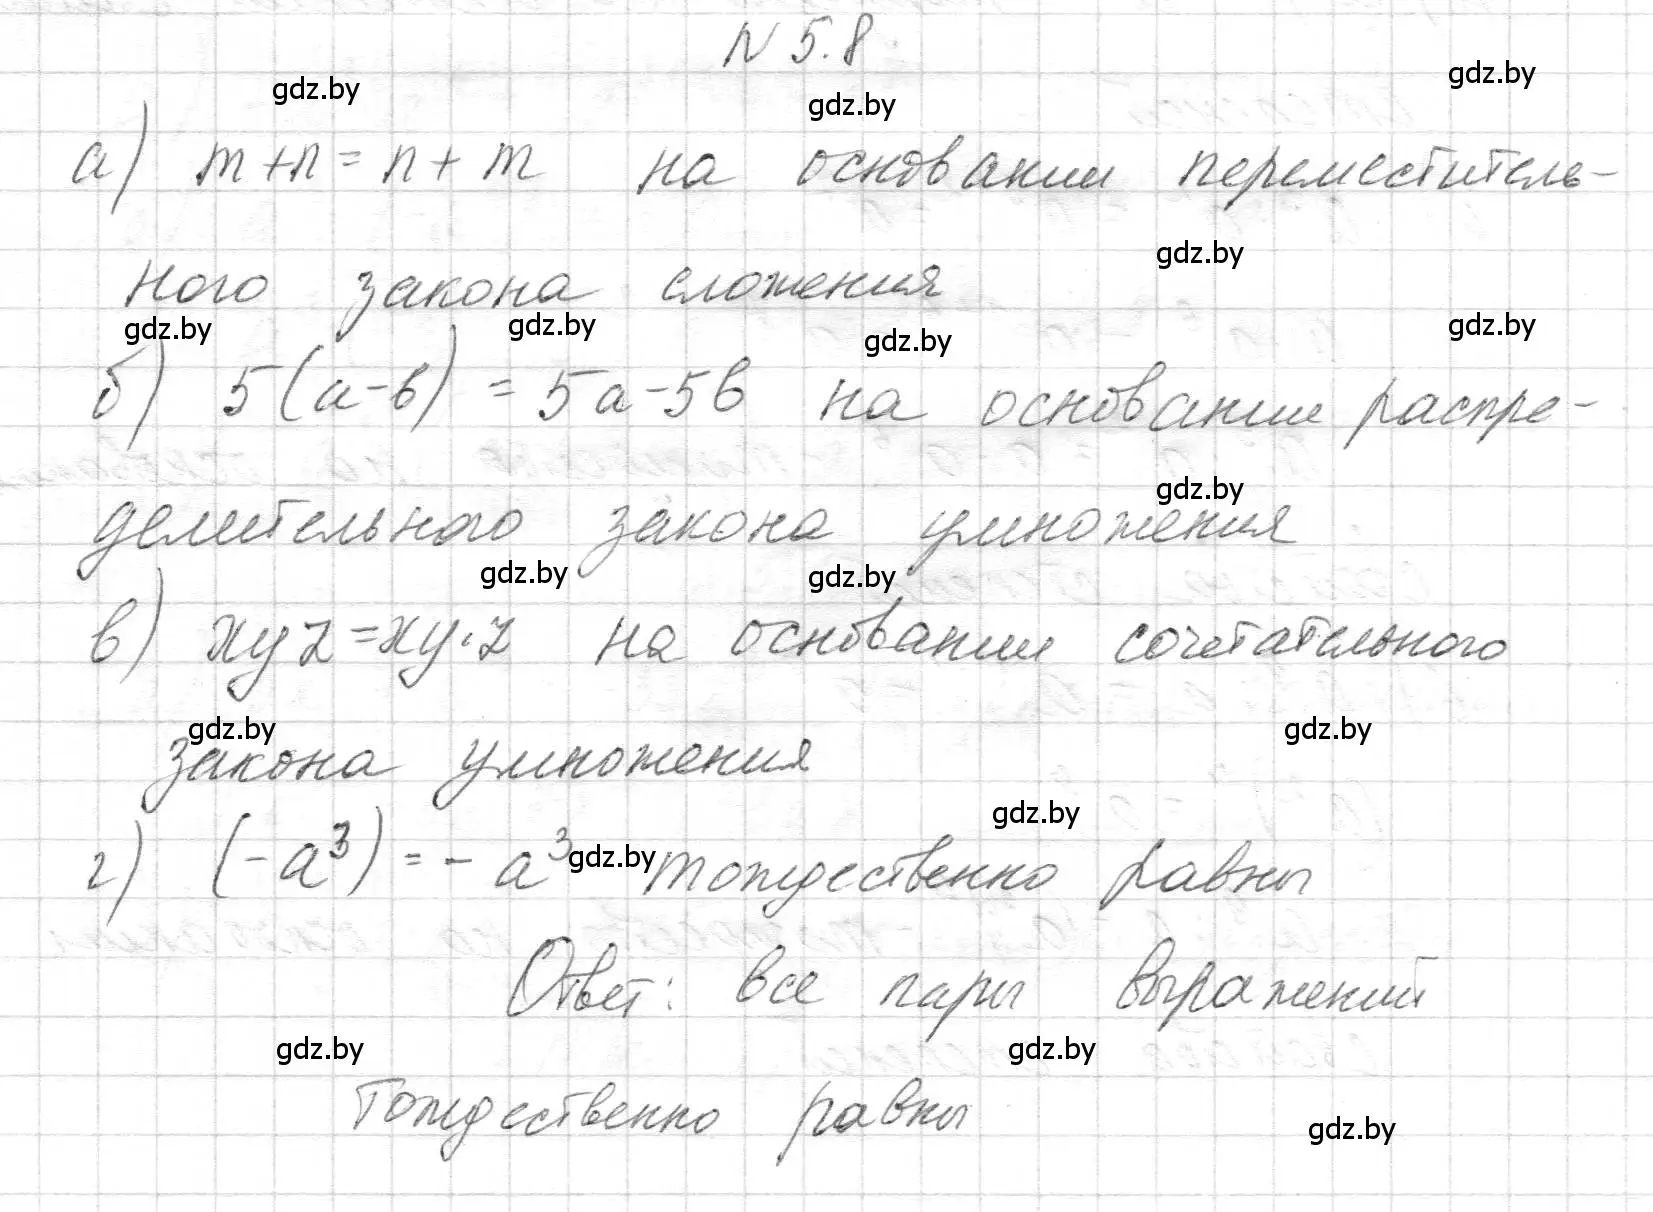 N 5.8
gdz.by gdz.by gdz.by
а) m+n=n+m на основании переместитель-
gdz.by
ного закона сложения
gdz.by gdz.by gdz.by gdz.by
б) 5(a-b) = 5a-5b на основании распре-
gdz.by
делительного закона умножения
gdz.by gdz.by
в) xyz=xy·z на основании сочетательного
gdz.by gdz.by
закона умножения
gdz.by
г) (-a³) = - a³ gdz.by тождественно равны
Ответ: все пары выражений
gdz.by gdz.by
тождественно равны
gdz.by